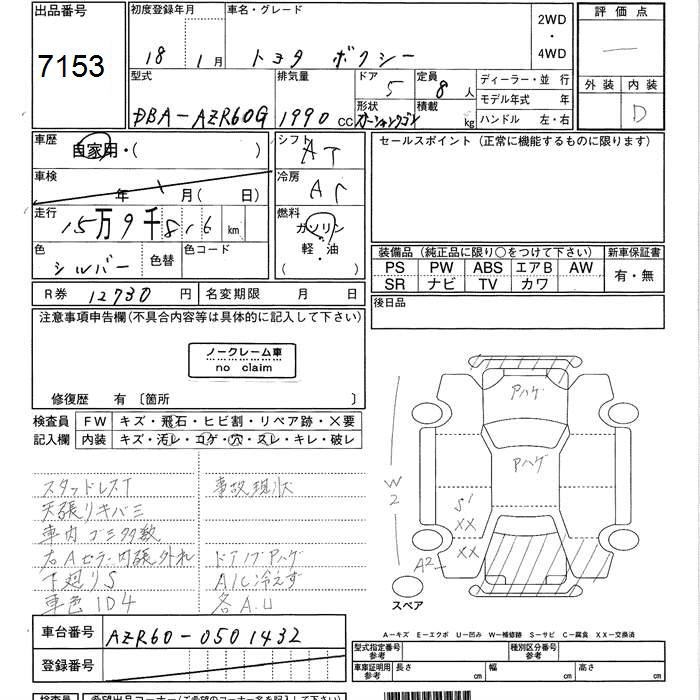 出品番号 初度登録年月 車名・グレード 2WD ・ 4WD 評価点
7153 18年 1月 トヨタ ボクシー
型式 排気量 ドア 5 定員 8人 ディーラー・並行 外装 内装
DBA-AZR60G 1990cc 形状 積載 kg モデル年式 年 D
ハンドル 左・右
車歴 自家用・( ) シフト AT セールスポイント(正常に機能するものに限ります)
車検 年 月( 日) 冷房 AC
走行 15万9千816km 燃料 ガソリン 軽・油 ( )
色 シルバー 色替 色コード
装備品(純正品に限り○をつけて下さい) 新車保証書
PS PW ABS エアB AW 有・無
SR ナビ TV カワ
R券 12730円 名変期限 月 日 後日品
注意事項申告欄(不具合内容等は具体的に記入して下さい)
ノークレーム車
no claim
修復歴 有〔箇所 〕
検査員 FW キズ・飛石・ヒビ割・リペア跡・×要
記入欄 内装 キズ・汚レ・コゲ・穴・スレ・キレ・破レ
スタッドレスT 事故現状
天張りキバミ
車内ゴミ多数
右Aピラー内張外れ ドアノブハゲ
下廻りS A/C冷えず
車色1D4 各A.U
Pハゲ
Pハゲ
W2
S1
XX
XX
A2
スペア
A-キズ E-エクボ U-凹み W-補修跡 S-サビ C-腐食 XX-交換済
車台番号 AZR60-0501432
登録番号
型式指定番号 参考 種別区分番号 参考
車庫証明用 参考 長さ cm 幅 cm 高さ cm
検査員 希望出品コーナー(ご希望のコーナー名を記入して下さい)